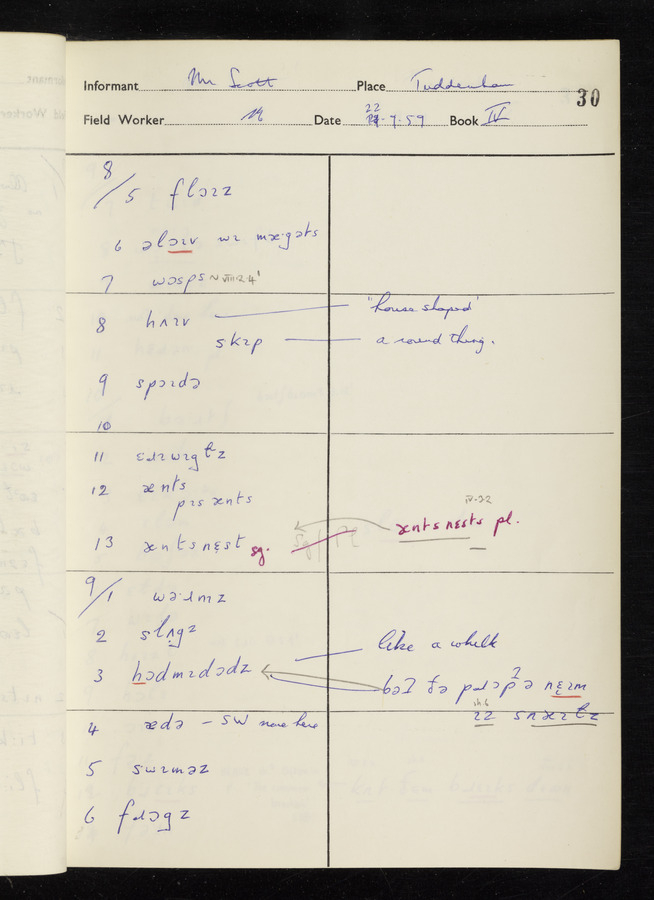 Informant Mr Scott Place Tuddenham 30
Field Worker Date 22 - 7 - 59 Book IV
8/5 flɔɪz
6 əlɔɪv wɪ mæ·gəts
7 wɔsps ~ VIII·2·4'
8 hʌɪv "house shaped"
skɪp a round thing.
9 spɔɪdə
10
11 ɛɹɪwɪgz
12 ænts
pɪsænts
13 æntsnɛst sg. æntsnɛsts pl.
IV-22
9/1 wəːɹmz
2 slʌgz
3 hɔdmɪdɔdz like a whelk
4 ædə - SW none here
5 swɪməz
6 fɹɔgz